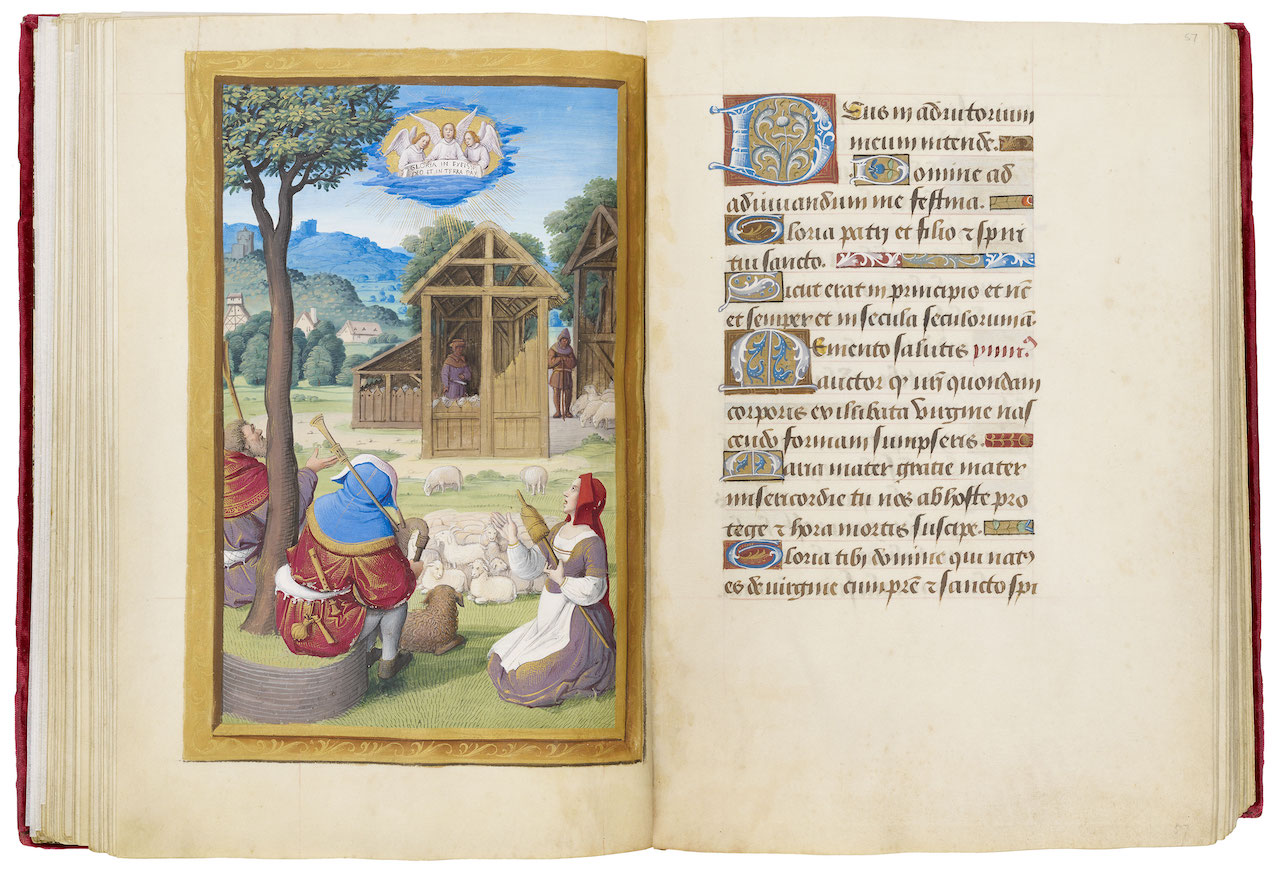 GLORIA IN EXELSIS
DEO ET IN TERRA PAX
57
Deus in adiutorium
meum intende.
Domine ad
adiuuandum me festina.
Gloria patri et filio ⁊ spiri
tui sancto.
Sicut erat in principio et nūc
et semper et in secula seculorum a
Memento salutis ymn.
auctor qͥ nr̄i quondam
corporis ex illibata virgine nas
cendo formam sumpseris.
Maria mater gratie mater
misericordie tu nos ab hoste pro
tege ⁊ hora mortis suscipe.
Gloria tibi domine qui natꝰ
es de virgine cum pr̄e ⁊ sancto spi
57